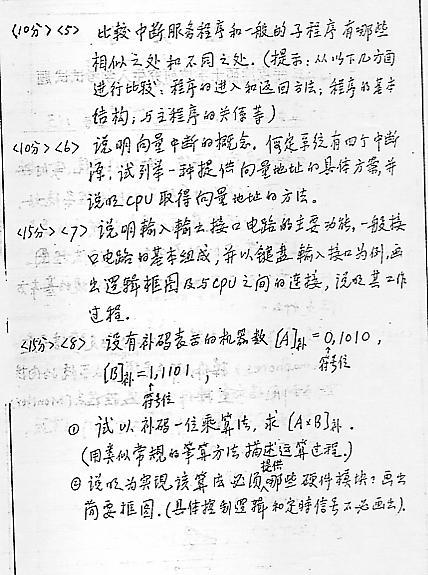 <10分> <5> 比较中断服务程序和一般的子程序有哪些
相似之处和不同之处. (提示: 从以下几方面
进行比较: 程序的进入和返回方法; 程序的基本
结构; 与主程序的关系等)
<10分> <6> 说明向量中断的概念. 假定系统有四个中断
源, 试列举一种提供向量地址的具体方案, 并
说明CPU取得向量地址的方法.
<15分> <7> 说明输入输出接口电路的主要功能, 一般接
口电路的基本组成, 并以键盘输入接口为例, 画
出逻辑框图及与CPU之间的连接, 说明其工作
过程.
<15分> <8> 设有补码表示的机器数 [A]补 = 0,1010,
符号位
[B]补 = 1,1101,
符号位
① 试以补码一位乘算法, 求 [A×B]补.
(用类似常规的笔算方法描述运算过程.)
② 说明为实现该算法必须提供哪些硬件模块? 画出
简要框图. (具体控制逻辑和定时信号不必画出).